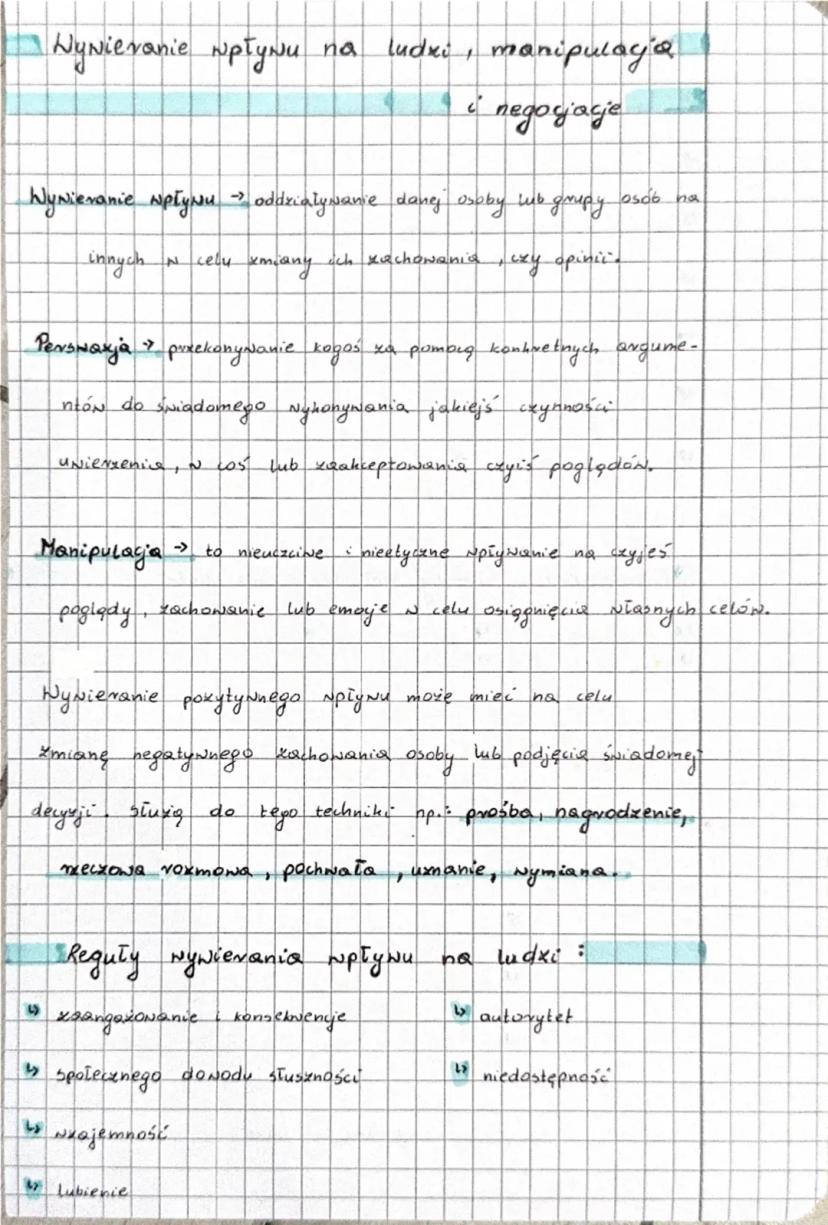 Wywieranie wpływu na ludzi, manipulacja
i negocjacje
Wywieranie wpływu → oddziaływanie danej osoby lub grupy osób na
innych w celu zmiany ich zachowania, czy opinii.
Perswazja → przekonywanie kogoś za pomocą konkretnych argume-
ntów do świadomego wykonywania jakiejś czynności
uwierzenia, w coś lub zaakceptowania czyiś poglądów.
Manipulacja → to nieuczciwe i nieetyczne wpływanie na czyjeś
poglądy, zachowanie lub emocje w celu osiągnięcia własnych celów.
Wywieranie pozytywnego wpływu może mieć na celu
zmianę negatywnego zachowania osoby lub podjęcia świadomej
decyzji. Służą do tego techniki np.: prośba, nagrodzenie,
rzeczowa rozmowa, pochwała, uznanie, wymiana.
Reguły wywierania wpływu na ludzi:
↳ zaangażowanie i konsekwencje
↳ społecznego dowodu słuszności
↳ wzajemność
↳ lubienie
↳ autorytet
↳ niedostępność